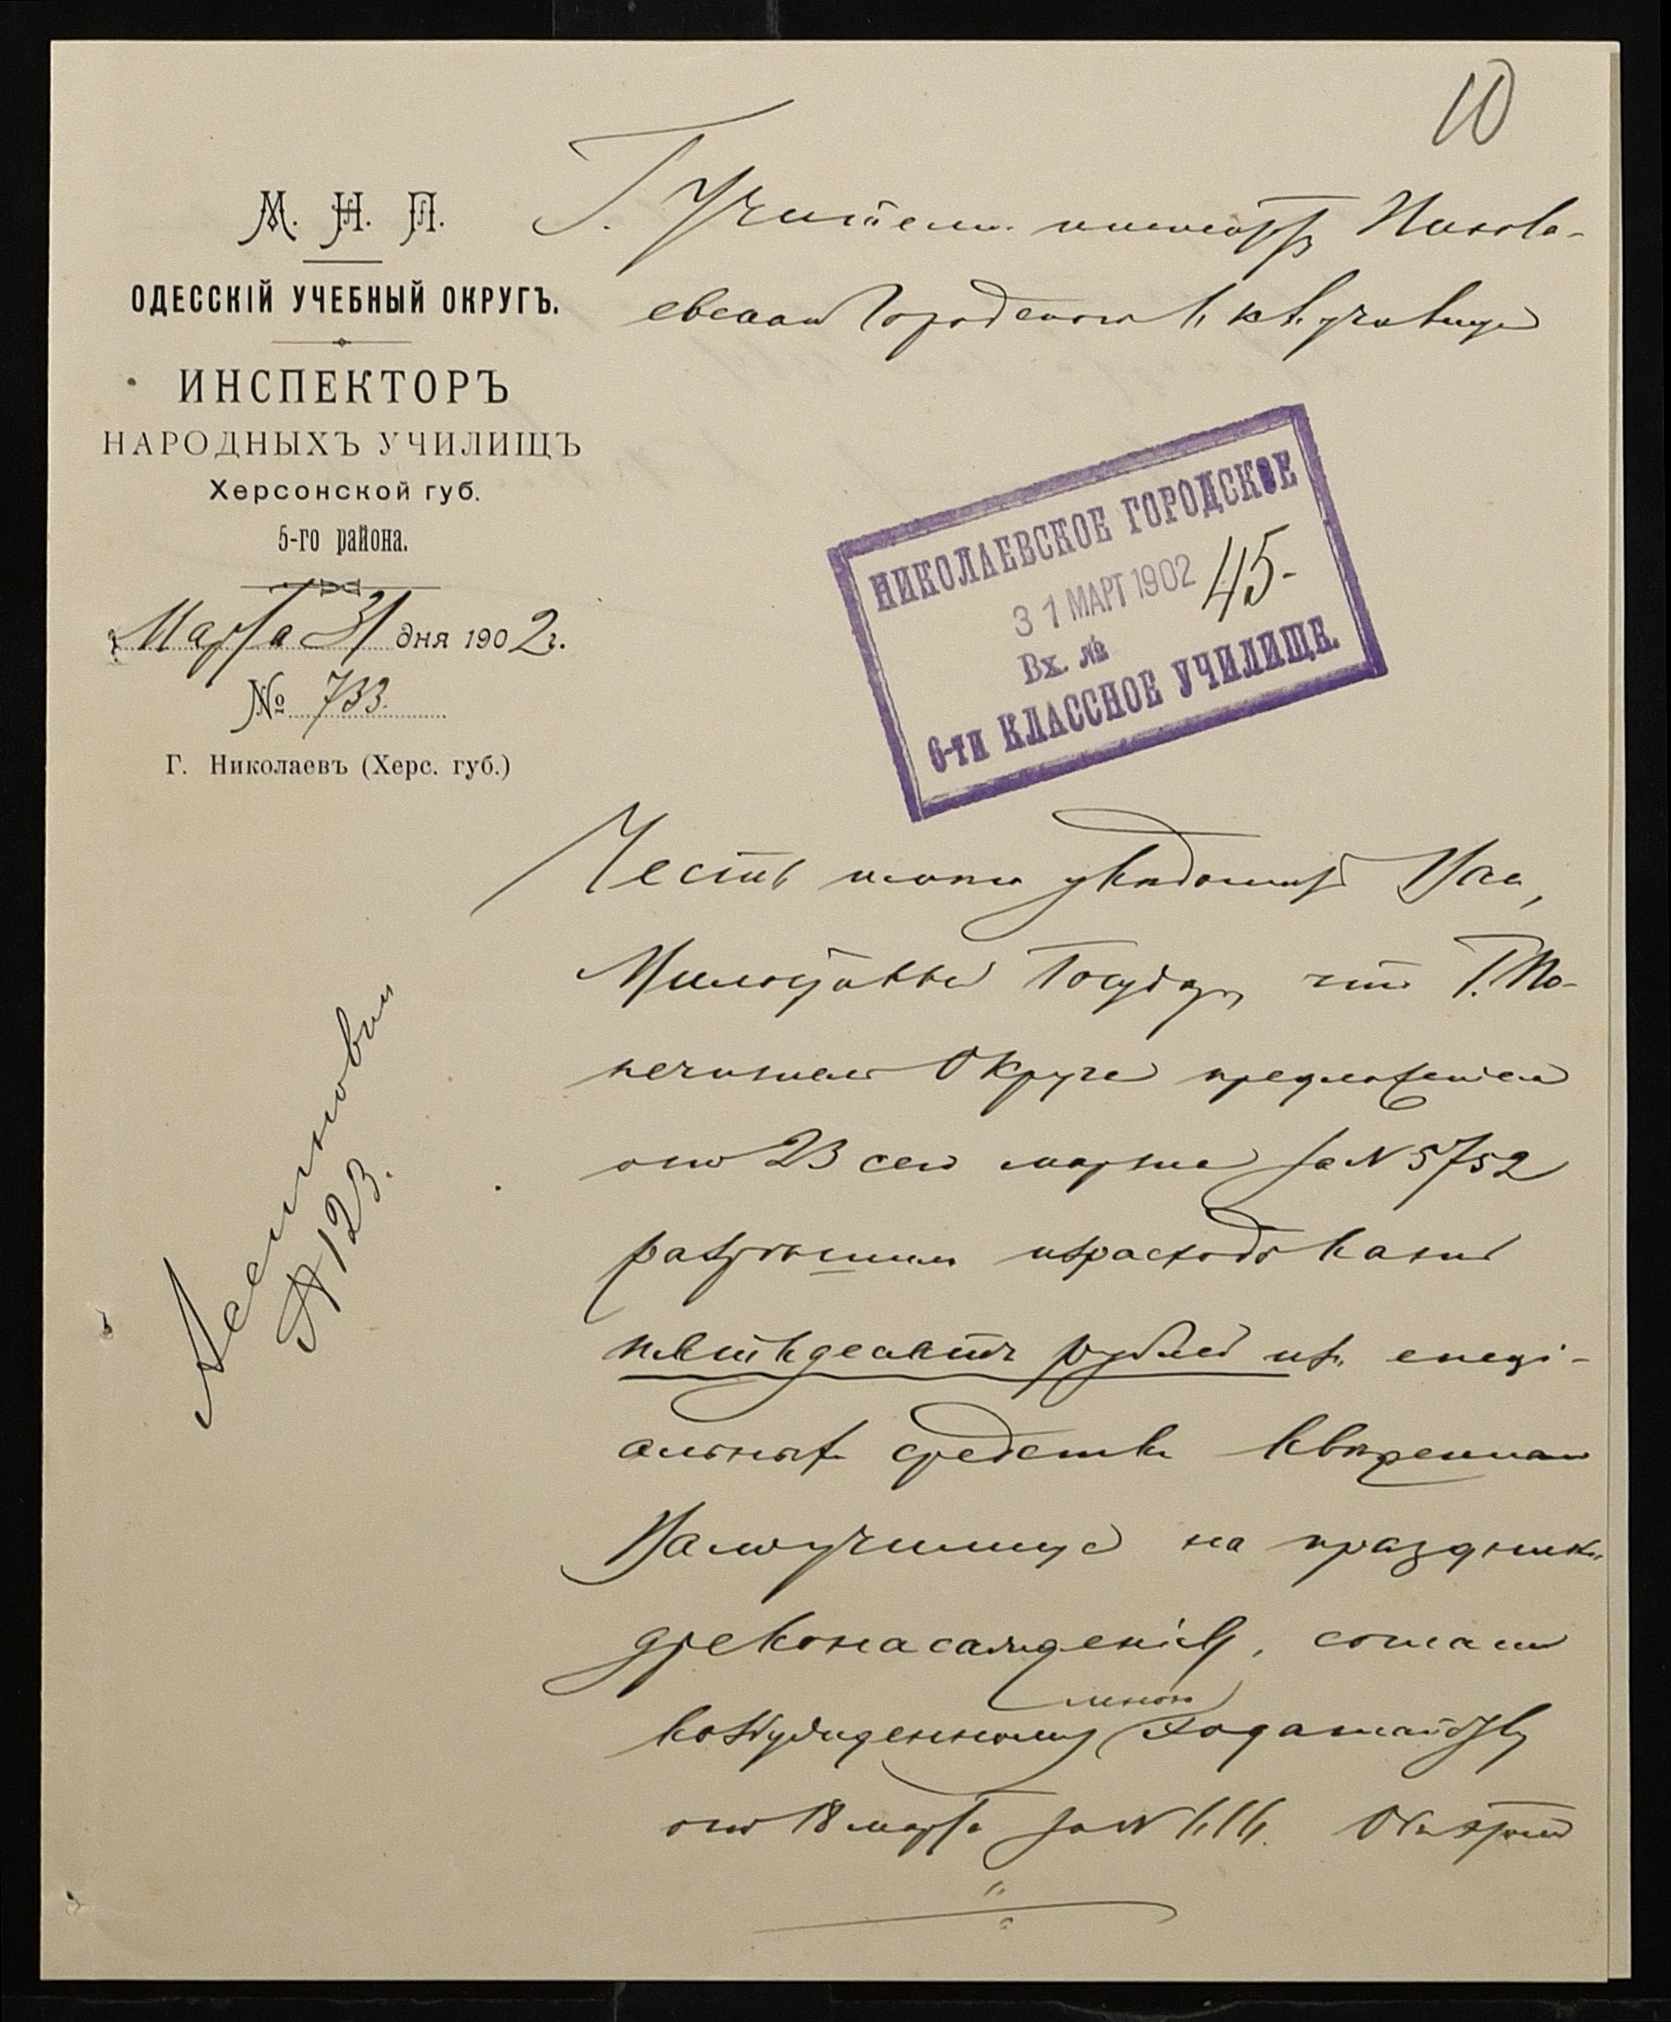 10
М. Н. П.
ОДЕССКІЙ УЧЕБНЫЙ ОКРУГЪ.
ИНСПЕКТОРЪ
НАРОДНЫХЪ УЧИЛИЩЪ
Херсонской губ.
5-го района.
Марта 31 дня 1902 г.
№ 733.
Г. Николаевъ (Херс. губ.)
Г. Учителю инспектору Никола-
евскаго Городского 6 кл. училища
НИКОЛАЕВСКОЕ ГОРОДСКОЕ
31 МАРТ 1902
Вх. № 45-
6-ти КЛАССНОЕ УЧИЛИЩЕ.
Честь имѣю увѣдомить Васъ,
Милостивый Государь, что Г. По-
печитель Округа предложеніемъ
отъ 23 сего марта за № 5752
разрѣшилъ израсходованіе
пятьдесятъ рублей изъ спеці-
альныхъ средствъ ввѣреннаго
Вамъ училища на праздникъ
древонасажденія, согласно
возбужденному мною ходатайству
отъ 18 марта за № 616.
№ 123.